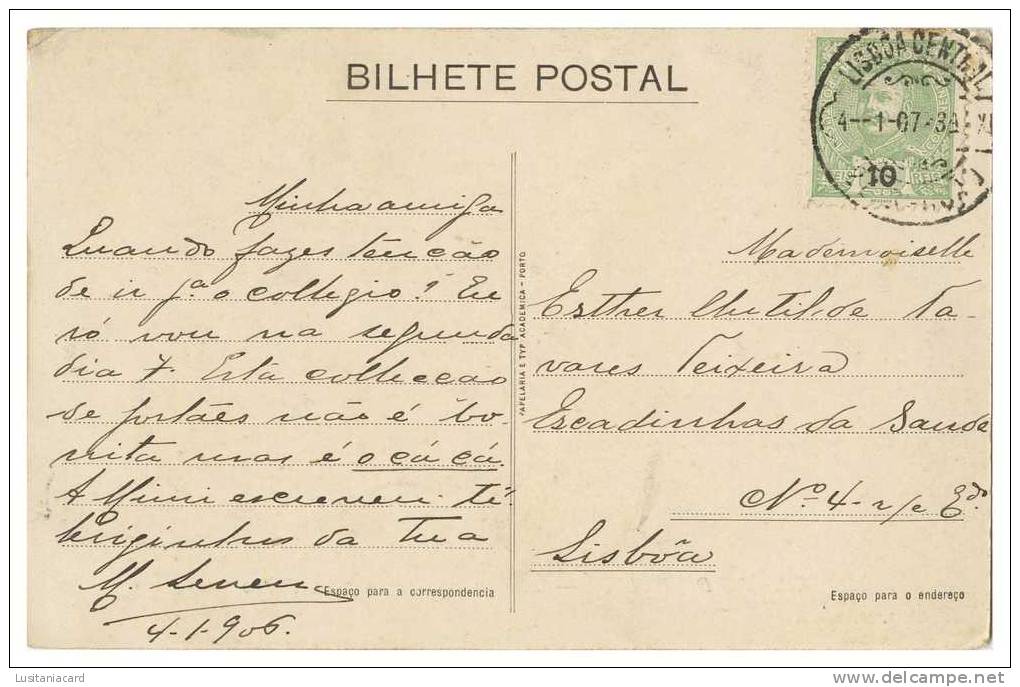 BILHETE POSTAL
LISBOA CENTRAL
4--1-07-3A
10
Minha amiga
Quando fazes tenção
de ir pª o collegio? Eu
só vou na segunda
dia 7. Esta collecção
de postaes não é bo-
nita mas é o cá cá.
A Mimi escreveu-te?
Beijinhos da tua
M.
4-1-906.
Espaço para a correspondencia
PAPELARIA E TYP. ACADEMICA - PORTO
Mademoiselle
Esther Clutilde Ta-
vares Teixeira
Escadinhas da Saude
Nº 4- r/c Edo.
Lisbôa
Espaço para o endereço
Lusitaniacard
delcampe.net